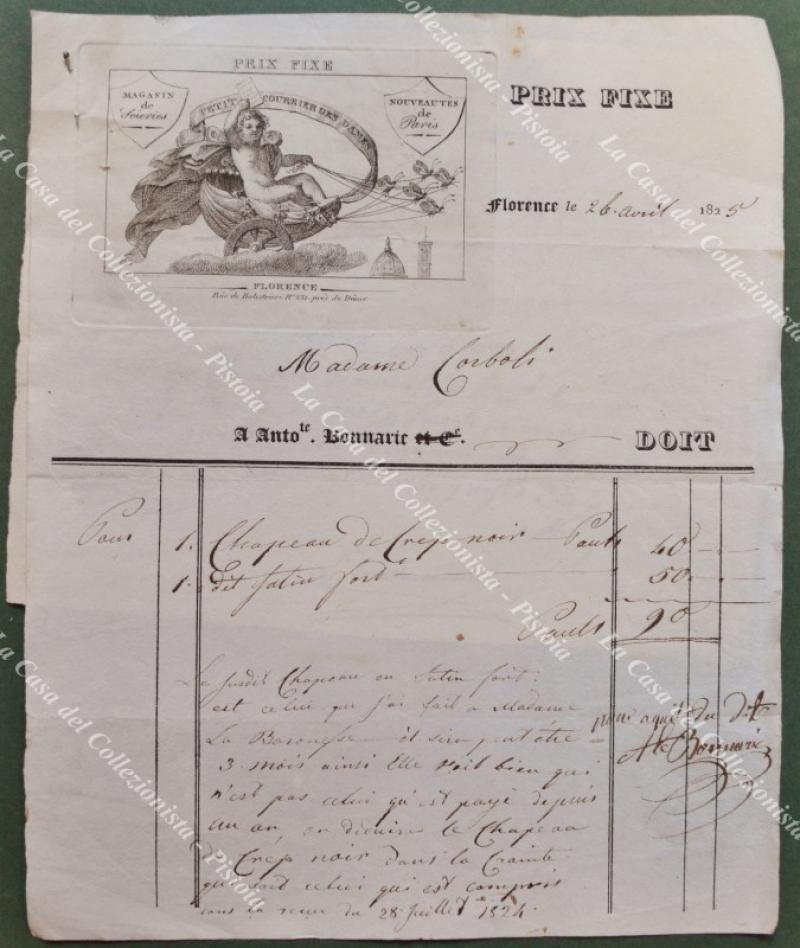 PRIX FIXE
MAGASIN
de
Soieries
PETIT COURRIER DES DAMES
NOUVEAUTÉS
de
Paris
FLORENCE
près du Dôme
PRIX FIXE
Florence le 26 avril 1825
Madame Corboli
A Anto.te Bonnaric et Ce. DOIT
Pour 1. Chapeau de Crep noir Pauls 40
1. dit Satin fort 50
Pauls 90
Le susdit Chapeau en Satin fort
est celui que j'ai fait a Madame
La Baronesse il sera peut être
3 mois ainsi Elle voit bien qui
n'est pas celui qu'est payé depuis
un an, le Chapeau
Crep noir dans la Crainte
que soit celui qui est compris
dans la recue du 28 Juillet 1824.
pour aquit du dit
Ate Bonnaric
La Casa del Collezionista - Pistoia